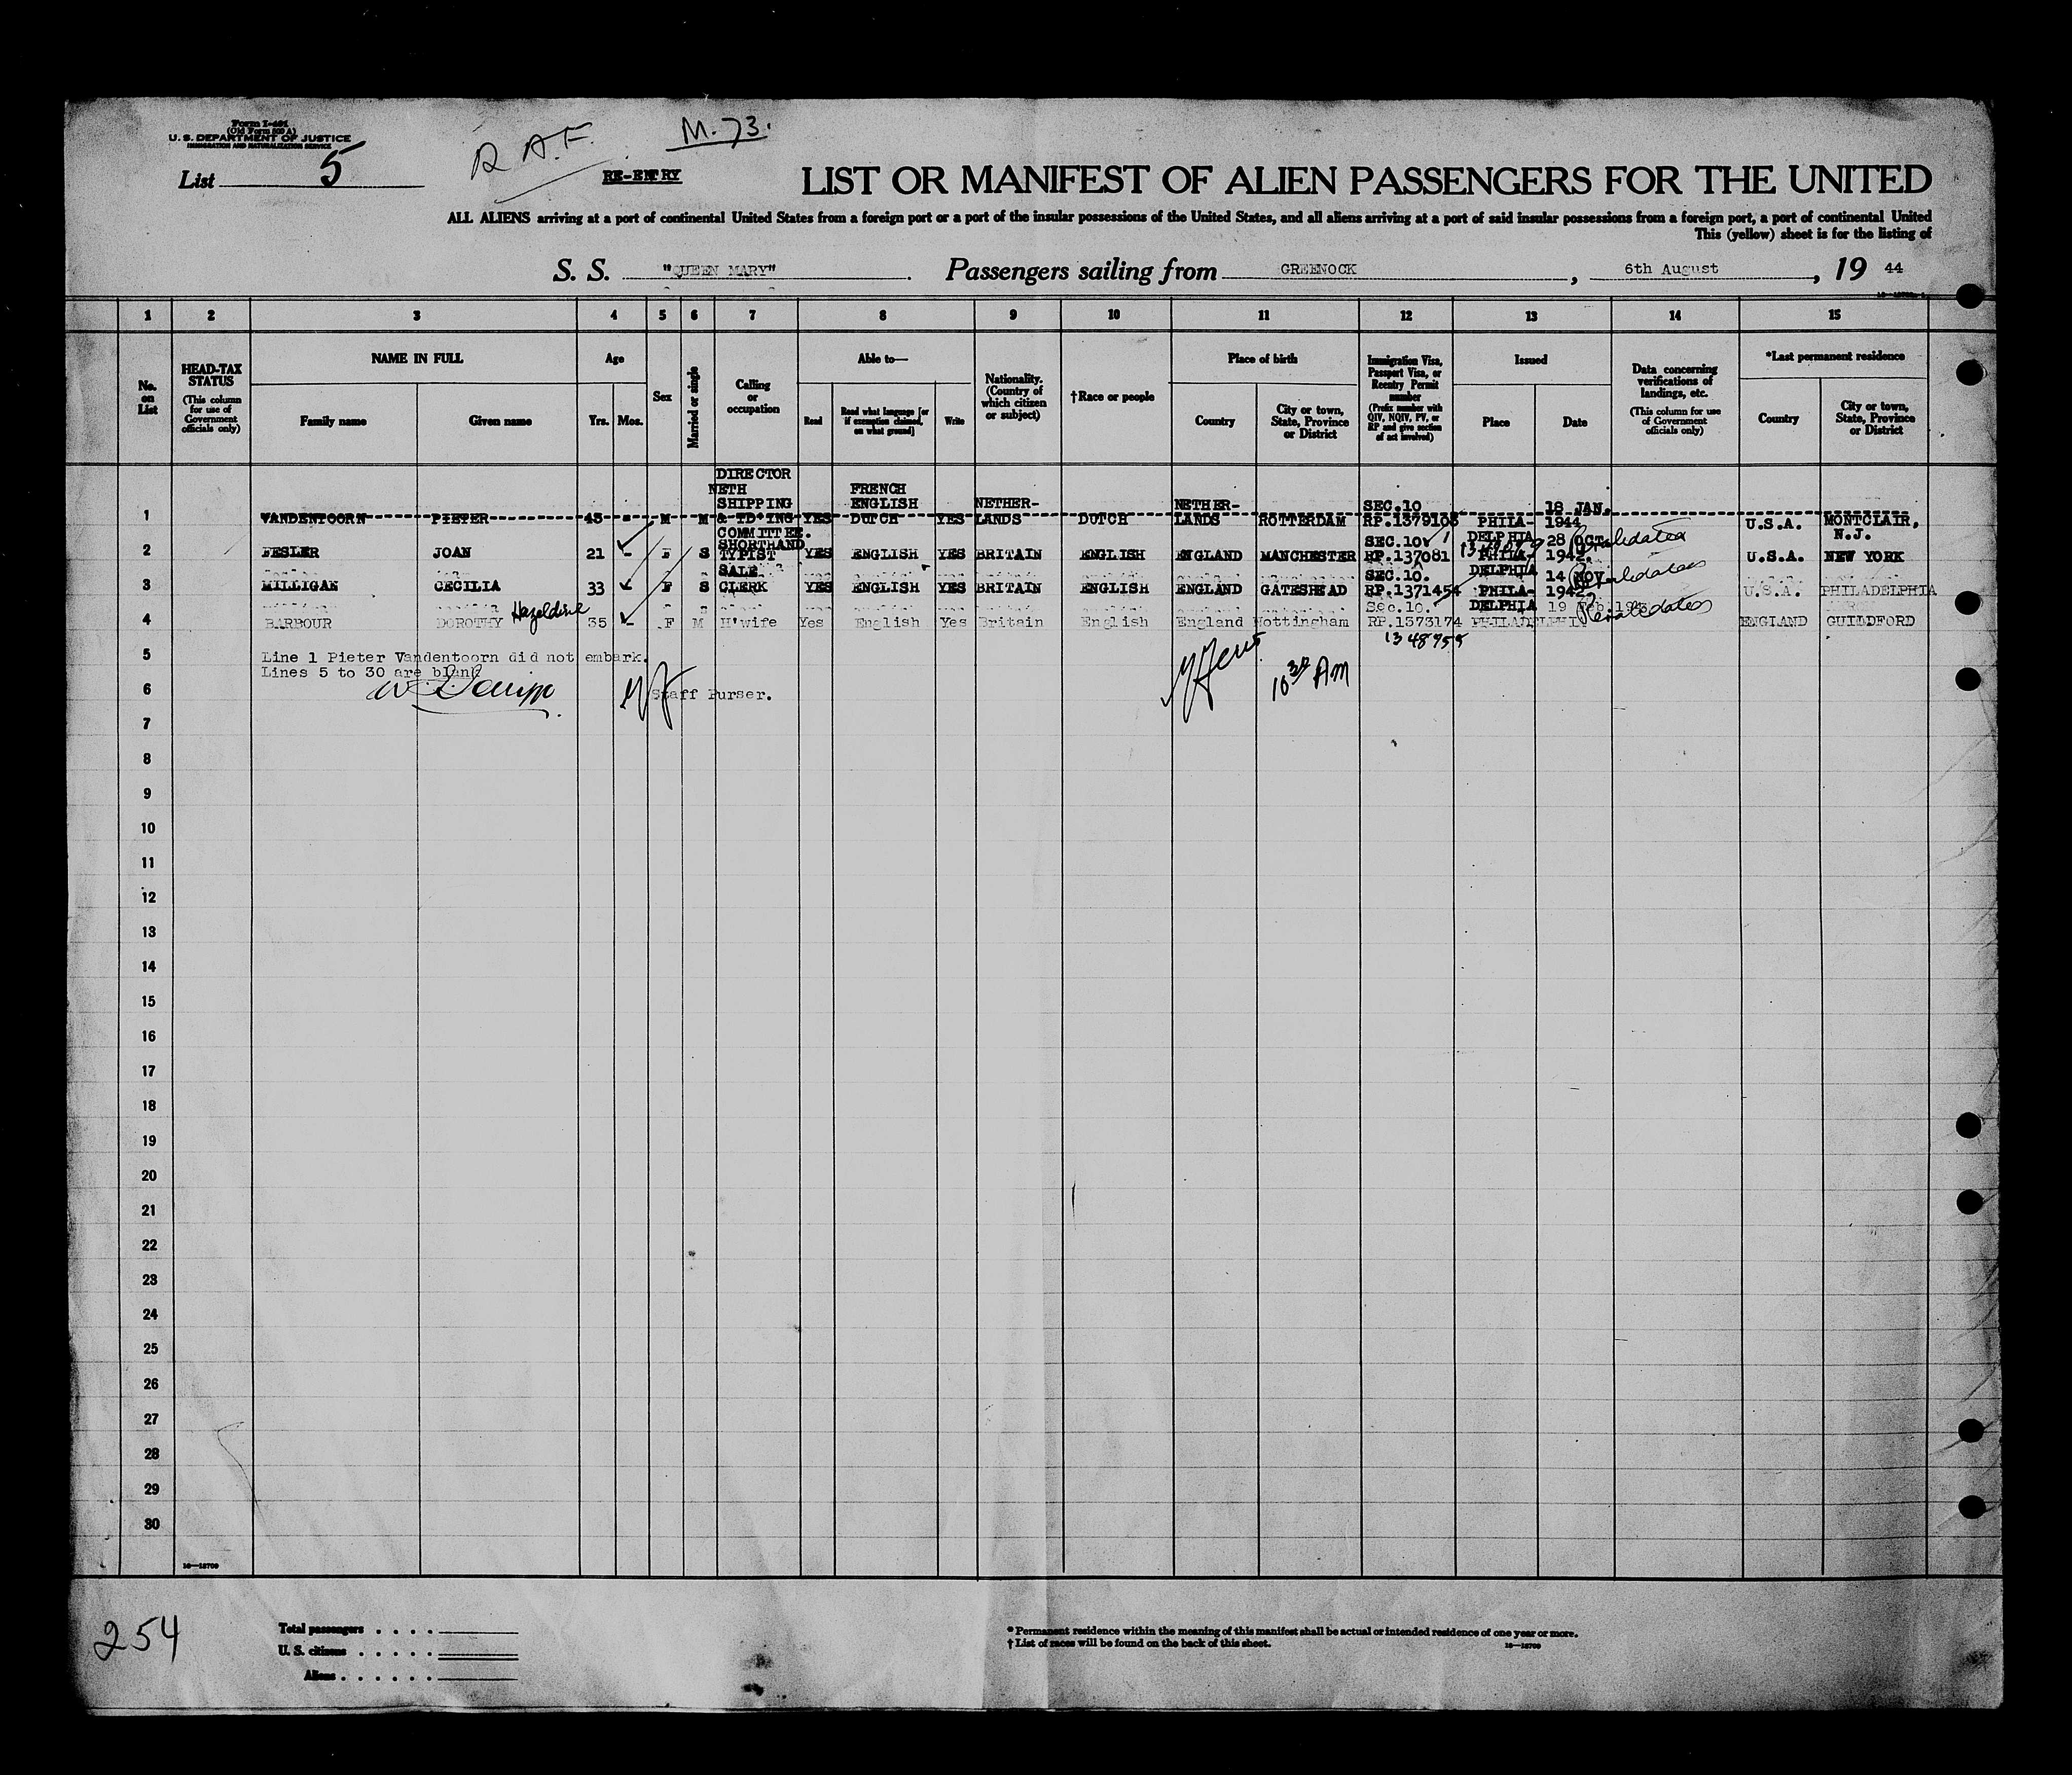 Form I-491
(Old Form 500 A)
U. S. DEPARTMENT OF JUSTICE
IMMIGRATION AND NATURALIZATION SERVICE
List 5
R A.F.
M.73.
RE-ENTRY
LIST OR MANIFEST OF ALIEN PASSENGERS FOR THE UNITED
ALL ALIENS arriving at a port of continental United States from a foreign port or a port of the insular possessions of the United States, and all aliens arriving at a port of said insular possessions from a foreign port, a port of continental United
This (yellow) sheet is for the listing of
S. S. "QUEEN MARY" Passengers sailing from GREENOCK, 6th August, 19 44
1 2 3 4 5 6 7 8 9 10 11 12 13 14 15
No. on List
HEAD-TAX STATUS (This column for use of Government officials only)
NAME IN FULL Family name Given name
Age Yrs. Mos.
Sex
Married or single
Calling or occupation
Able to— Read Read what language [or if exemption claimed, on what ground] Write
Nationality. (Country of which citizen or subject)
†Race or people
Place of birth Country City or town, State, Province or District
Immigration Visa, Passport Visa, or Reentry Permit number (Prefix number with QIV, NQIV, PV, or RP and give section of act involved)
Issued Place Date
Data concerning verifications of landings, etc. (This column for use of Government officials only)
*Last permanent residence Country City or town, State, Province or District
1 VANDENTOORN PIETER 45 - M M DIRECTOR NETH SHIPPING & TD'ING COMMITTEE. YES FRENCH ENGLISH DUTCH YES NETHER-LANDS DUTCH NETHER-LANDS ROTTERDAM SEC.10 RP.1379108 PHILA-DELPHIA 18 JAN. 1944 U.S.A. MONTCLAIR, N.J.
2 FESLER JOAN 21 - F S SHORTHAND TYPIST YES ENGLISH YES BRITAIN ENGLISH ENGLAND MANCHESTER SEC.10 RP.137081 PHILA-DELPHIA 28 OCT. 1942. Revalidated U.S.A. NEW YORK
3 MILLIGAN CECILIA 33 F S SALE CLERK YES ENGLISH YES BRITAIN ENGLISH ENGLAND GATESHEAD SEC.10. RP.1371454 PHILA-DELPHIA 14 NOV. 1942. Revalidated U.S.A. PHILADELPHIA
4 BARBOUR DOROTHY Hazeldine 35 - F M H'wife Yes English Yes Britain English England Nottingham Sec.10. RP.1373174 PHILADELPHIA 19 Feb.194 Revalidated ENGLAND GUILDFORD
1348755
5 Line 1 Pieter Vandentoorn did not embark.
Lines 5 to 30 are blank
6 Staff Purser.
10 30 AM
7
8
9
10
11
12
13
14
15
16
17
18
19
20
21
22
23
24
25
26
27
28
29
30
16—12709
254
Total passengers . . . .
U. S. citizens . . . . .
Aliens . . . . . .
* Permanent residence within the meaning of this manifest shall be actual or intended residence of one year or more.
† List of races will be found on the back of this sheet.
16—12709